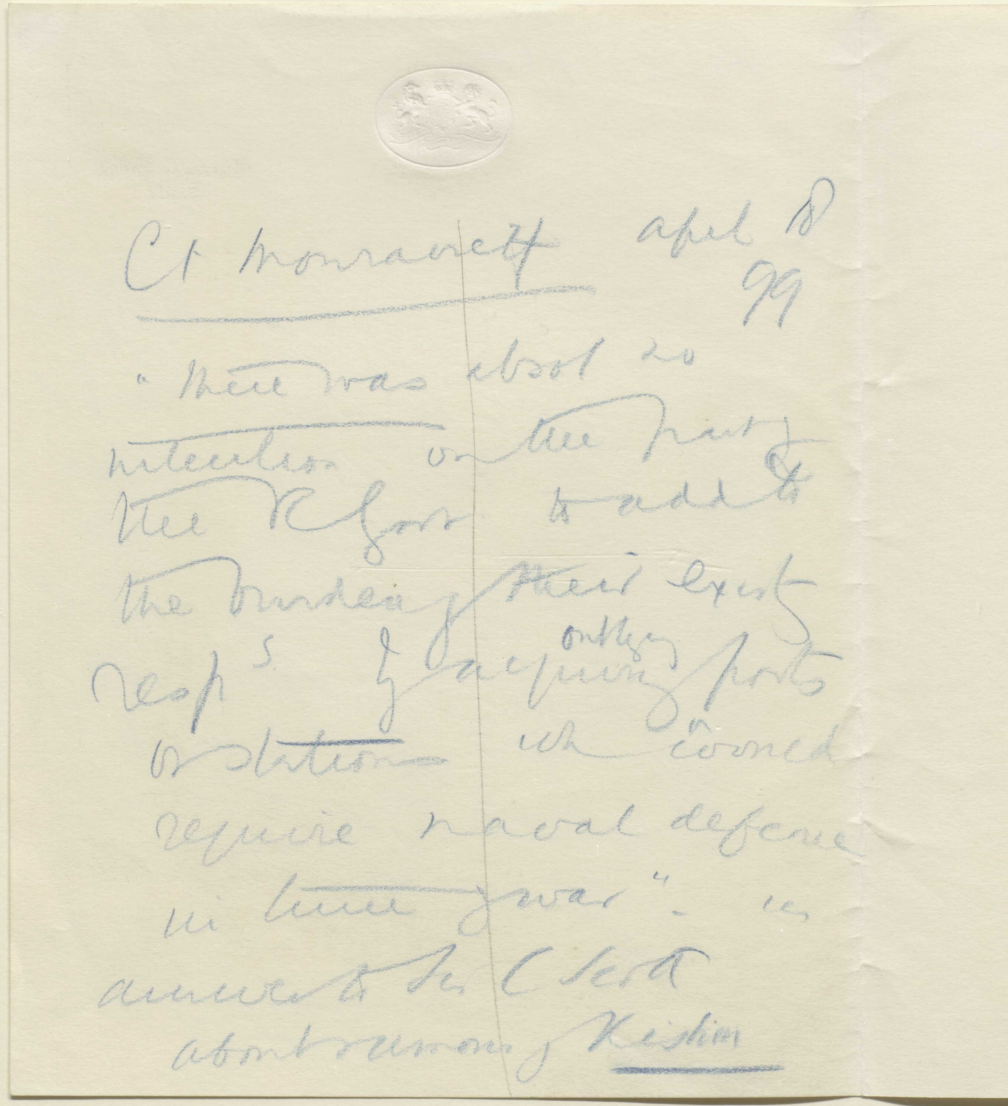 Ct Mouravieff April 18
99
"there was absol no
intention on the part of
the R Govt to add to
the burden of their existg
resps by acquiring outlying ports
or stations wh would
require naval defence
in time of war". in
answer to Sir C Scott
about rumours of Kishm